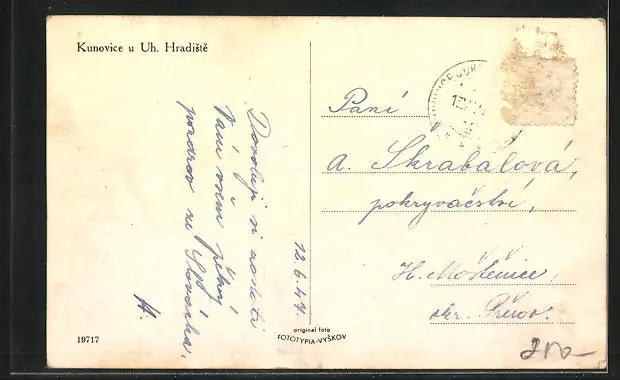 Kunovice u Uh. Hradiště
Dovoluji si zaslati
Vám všem pěkný
pozdrav ze Slovácka.
A.
12.6.47.
Paní
A. Skrabalová,
pokryvačství,
H. Moštěnice,
okr. Přerov.
19717
original foto
FOTOTYPIA-VYŠKOV